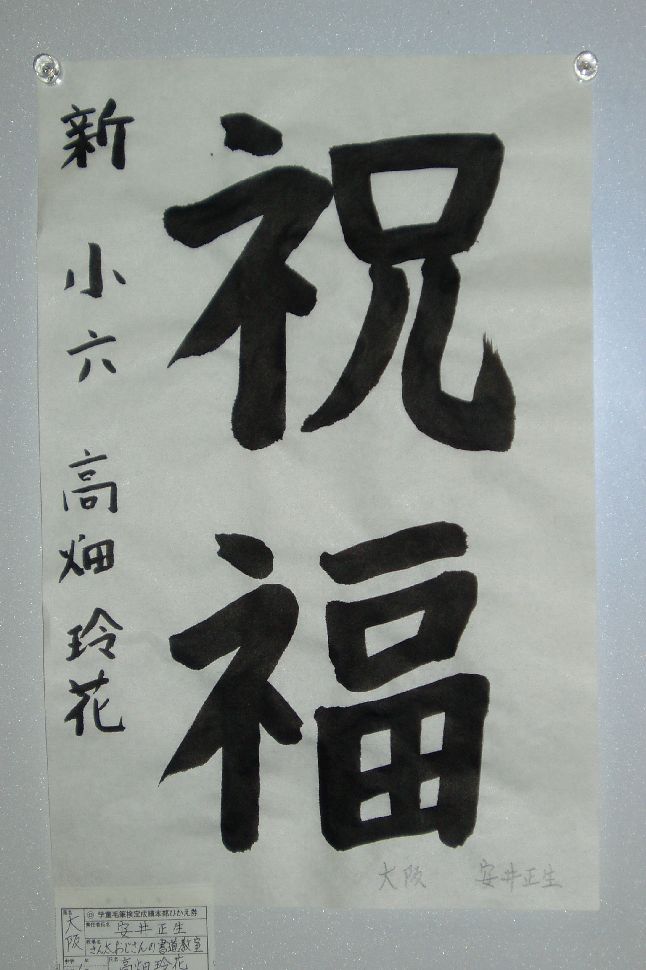 祝福
新 小六 高畑 玲花
大阪 安井正生
学童毛筆検定成績本部ひかえ券
大阪
責任者氏名 安井正生
教場名 さん太おじさんの書道教室
氏名 高畑玲花